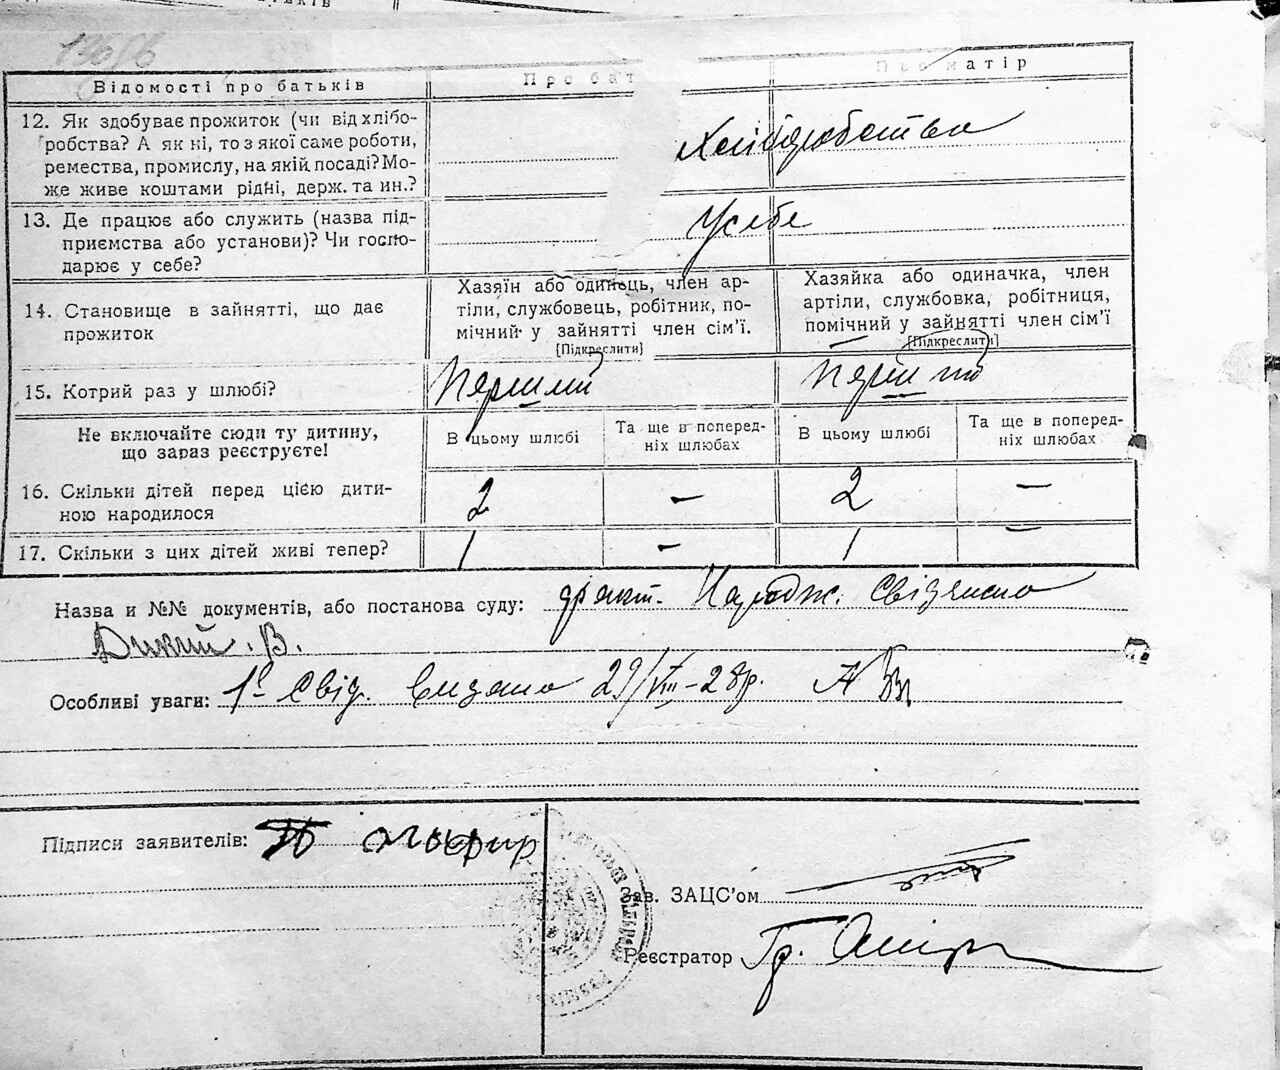 Відомості про батьків
Про бат
Про матір
12. Як здобуває прожиток (чи від хлібо-
робства? А як ні, то з якої саме роботи,
ремества, промислу, на якій посаді? Мо-
же живе коштами рідні, держ. та ин.?
Хліборобство
13. Де працює або служить (назва під-
приємства або установи)? Чи госпо-
дарює у себе?
У себе
14. Становище в зайнятті, що дає
прожиток
Хазяїн або одинець, член ар-
тіли, службовець, робітник, по-
мічний у зайнятті член сім'ї.
[Підкреслити]
Хазяйка або одиначка, член
артіли, службовка, робітниця,
помічний у зайнятті член сім'ї
[Підкреслити]
15. Котрий раз у шлюбі?
Перший
Не включайте сюди ту дитину,
що зараз реєструєте!
В цьому шлюбі
Та ще в поперед-
ніх шлюбах
В цьому шлюбі
Та ще в поперед-
ніх шлюбах
16. Скільки дітей перед цією дити-
ною народилося
2 – 2 –
17. Скільки з цих дітей живі тепер?
1 – 1 –
Назва и №№ документів, або постанова суду:
Дикий. В.
Особливі уваги: Свід. видано 29/VIII–28р.
Підписи заявителів:
Зав. ЗАЦС'ом
Реєстратор Гр.